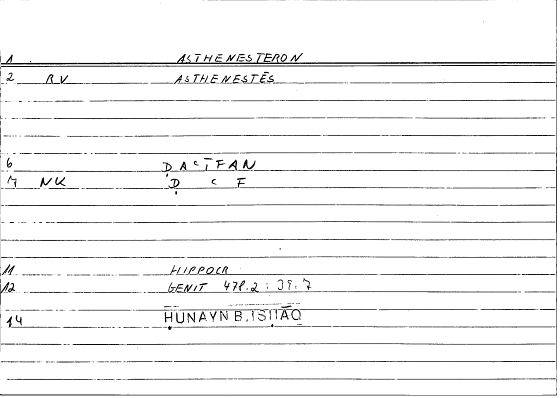 1 ASTHENESTERON
2 RV ASTHENESTĒS
6 ḌAʿĪFAN
7 NK Ḍ ʿ F
11 HIPPOCR
12 GENIT 478.2 : 39.7
14 ḤUNAYN B. ISḤĀQ